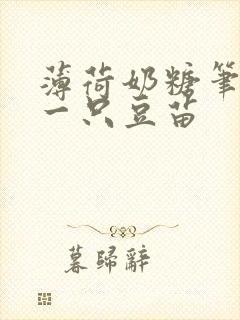 薄荷奶糖筆
一只豆苗
暮歸辭